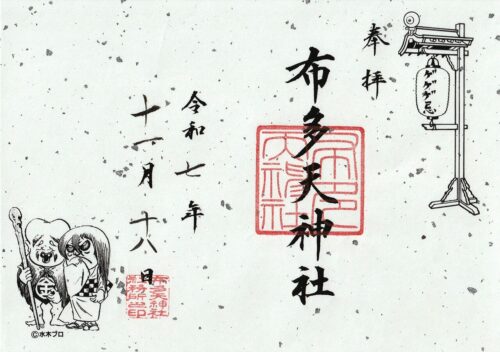 奉拝
ゲゲゲ忌
布多天神社
令和七年
十一月十八日
©水木プロ